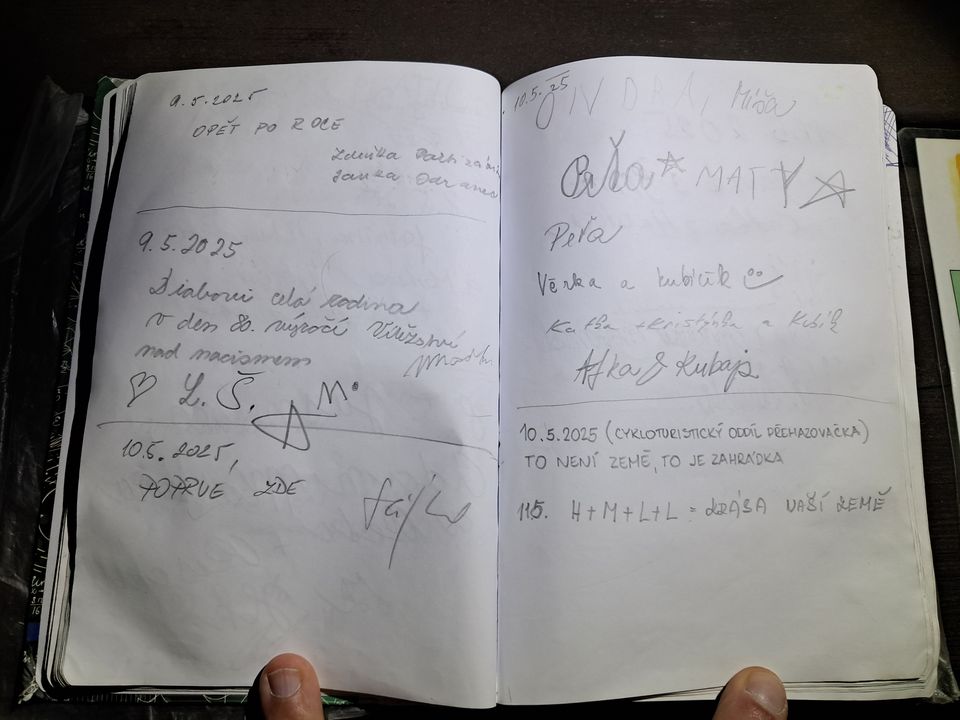 9.5.2025
OPĚT PO ROCE
Zdeňka
Janka
9.5.2025
celá rodina
v den 80. výročí Vítězství
nad nacismem
♡ L.Š. M.
10.5.2025,
POPRVÉ ZDE
10.5.25
JINDRA, Míša
MATY
Peťa
Věrka a Kubíčík
Katka + Kristýnka a Kubík
& Kubajs
10.5.2025 (CYKLOTURISTICKÝ ODDÍL PŘEHAZOVAČKA)
TO NENÍ ZEMĚ, TO JE ZAHRÁDKA
11.5. H+M+L+L = KRÁSA NAŠÍ ZEMĚ